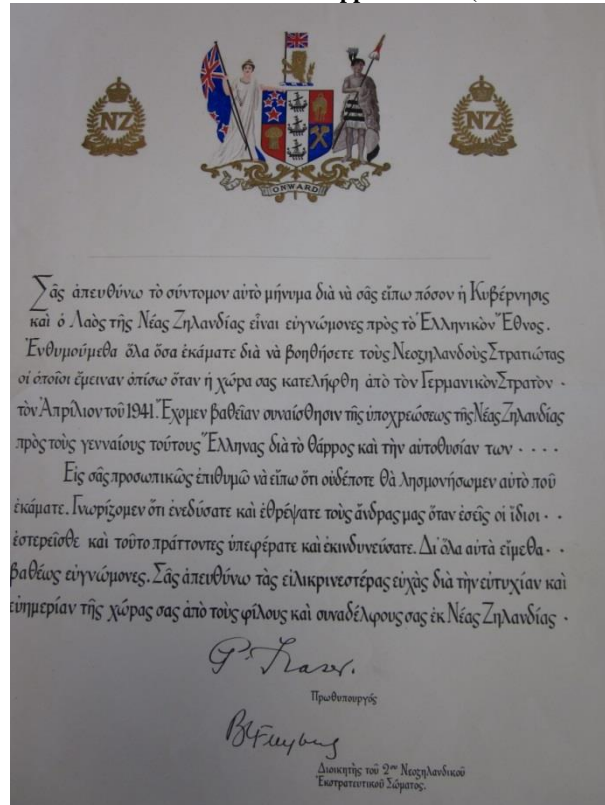 NZ
NZ
ONWARD
Σᾶς ἀπευθύνω τὸ σύντομον αὐτὸ μήνυμα διὰ νὰ σᾶς εἴπω πόσον ἡ Κυβέρνησις
καὶ ὁ Λαὸς τῆς Νέας Ζηλανδίας εἶναι εὐγνώμονες πρὸς τὸ Ἑλληνικὸν Ἔθνος.
Ἐνθυμούμεθα ὅλα ὅσα ἐκάματε διὰ νὰ βοηθήσετε τοὺς Νεοζηλανδοὺς Στρατιώτας
οἱ ὁποῖοι ἔμειναν ὀπίσω ὅταν ἡ χώρα σας κατελήφθη ἀπὸ τὸν Γερμανικὸν Στρατὸν ·
τὸν Ἀπρίλιον τοῦ 1941. Ἔχομεν βαθεῖαν συναίσθησιν τῆς ὑποχρεώσεως τῆς Νέας Ζηλανδίας
πρὸς τοὺς γενναίους τούτους Ἕλληνας διὰ τὸ θάρρος καὶ τὴν αὐτοθυσίαν των · · · ·
Εἰς σᾶς προσωπικῶς ἐπιθυμῶ νὰ εἴπω ὅτι οὐδέποτε θὰ λησμονήσωμεν αὐτὸ ποῦ
ἐκάματε. Γνωρίζομεν ὅτι ἐνεδύσατε καὶ ἐθρέψατε τοὺς ἄνδρας μας ὅταν ἐσεῖς οἱ ἴδιοι · ·
ἐστερεῖσθε καὶ τοῦτο πράττοντες ὑπεφέρατε καὶ ἐκινδυνεύσατε. Δι ὅλα αὐτὰ εἴμεθα · ·
βαθέως εὐγνώμονες. Σᾶς ἀπευθύνω τὰς εἰλικρινεστέρας εὐχὰς διὰ τὴν εὐτυχίαν καὶ
εὐημερίαν τῆς χώρας σας ἀπὸ τοὺς φίλους καὶ συναδέλφους σας ἐκ Νέας Ζηλανδίας ·
P. Fraser.
Πρωθυπουργός
B Freyberg
Διοικητὴς τοῦ 2ου Νεοζηλανδικοῦ
Ἐκστρατευτικοῦ Σώματος.